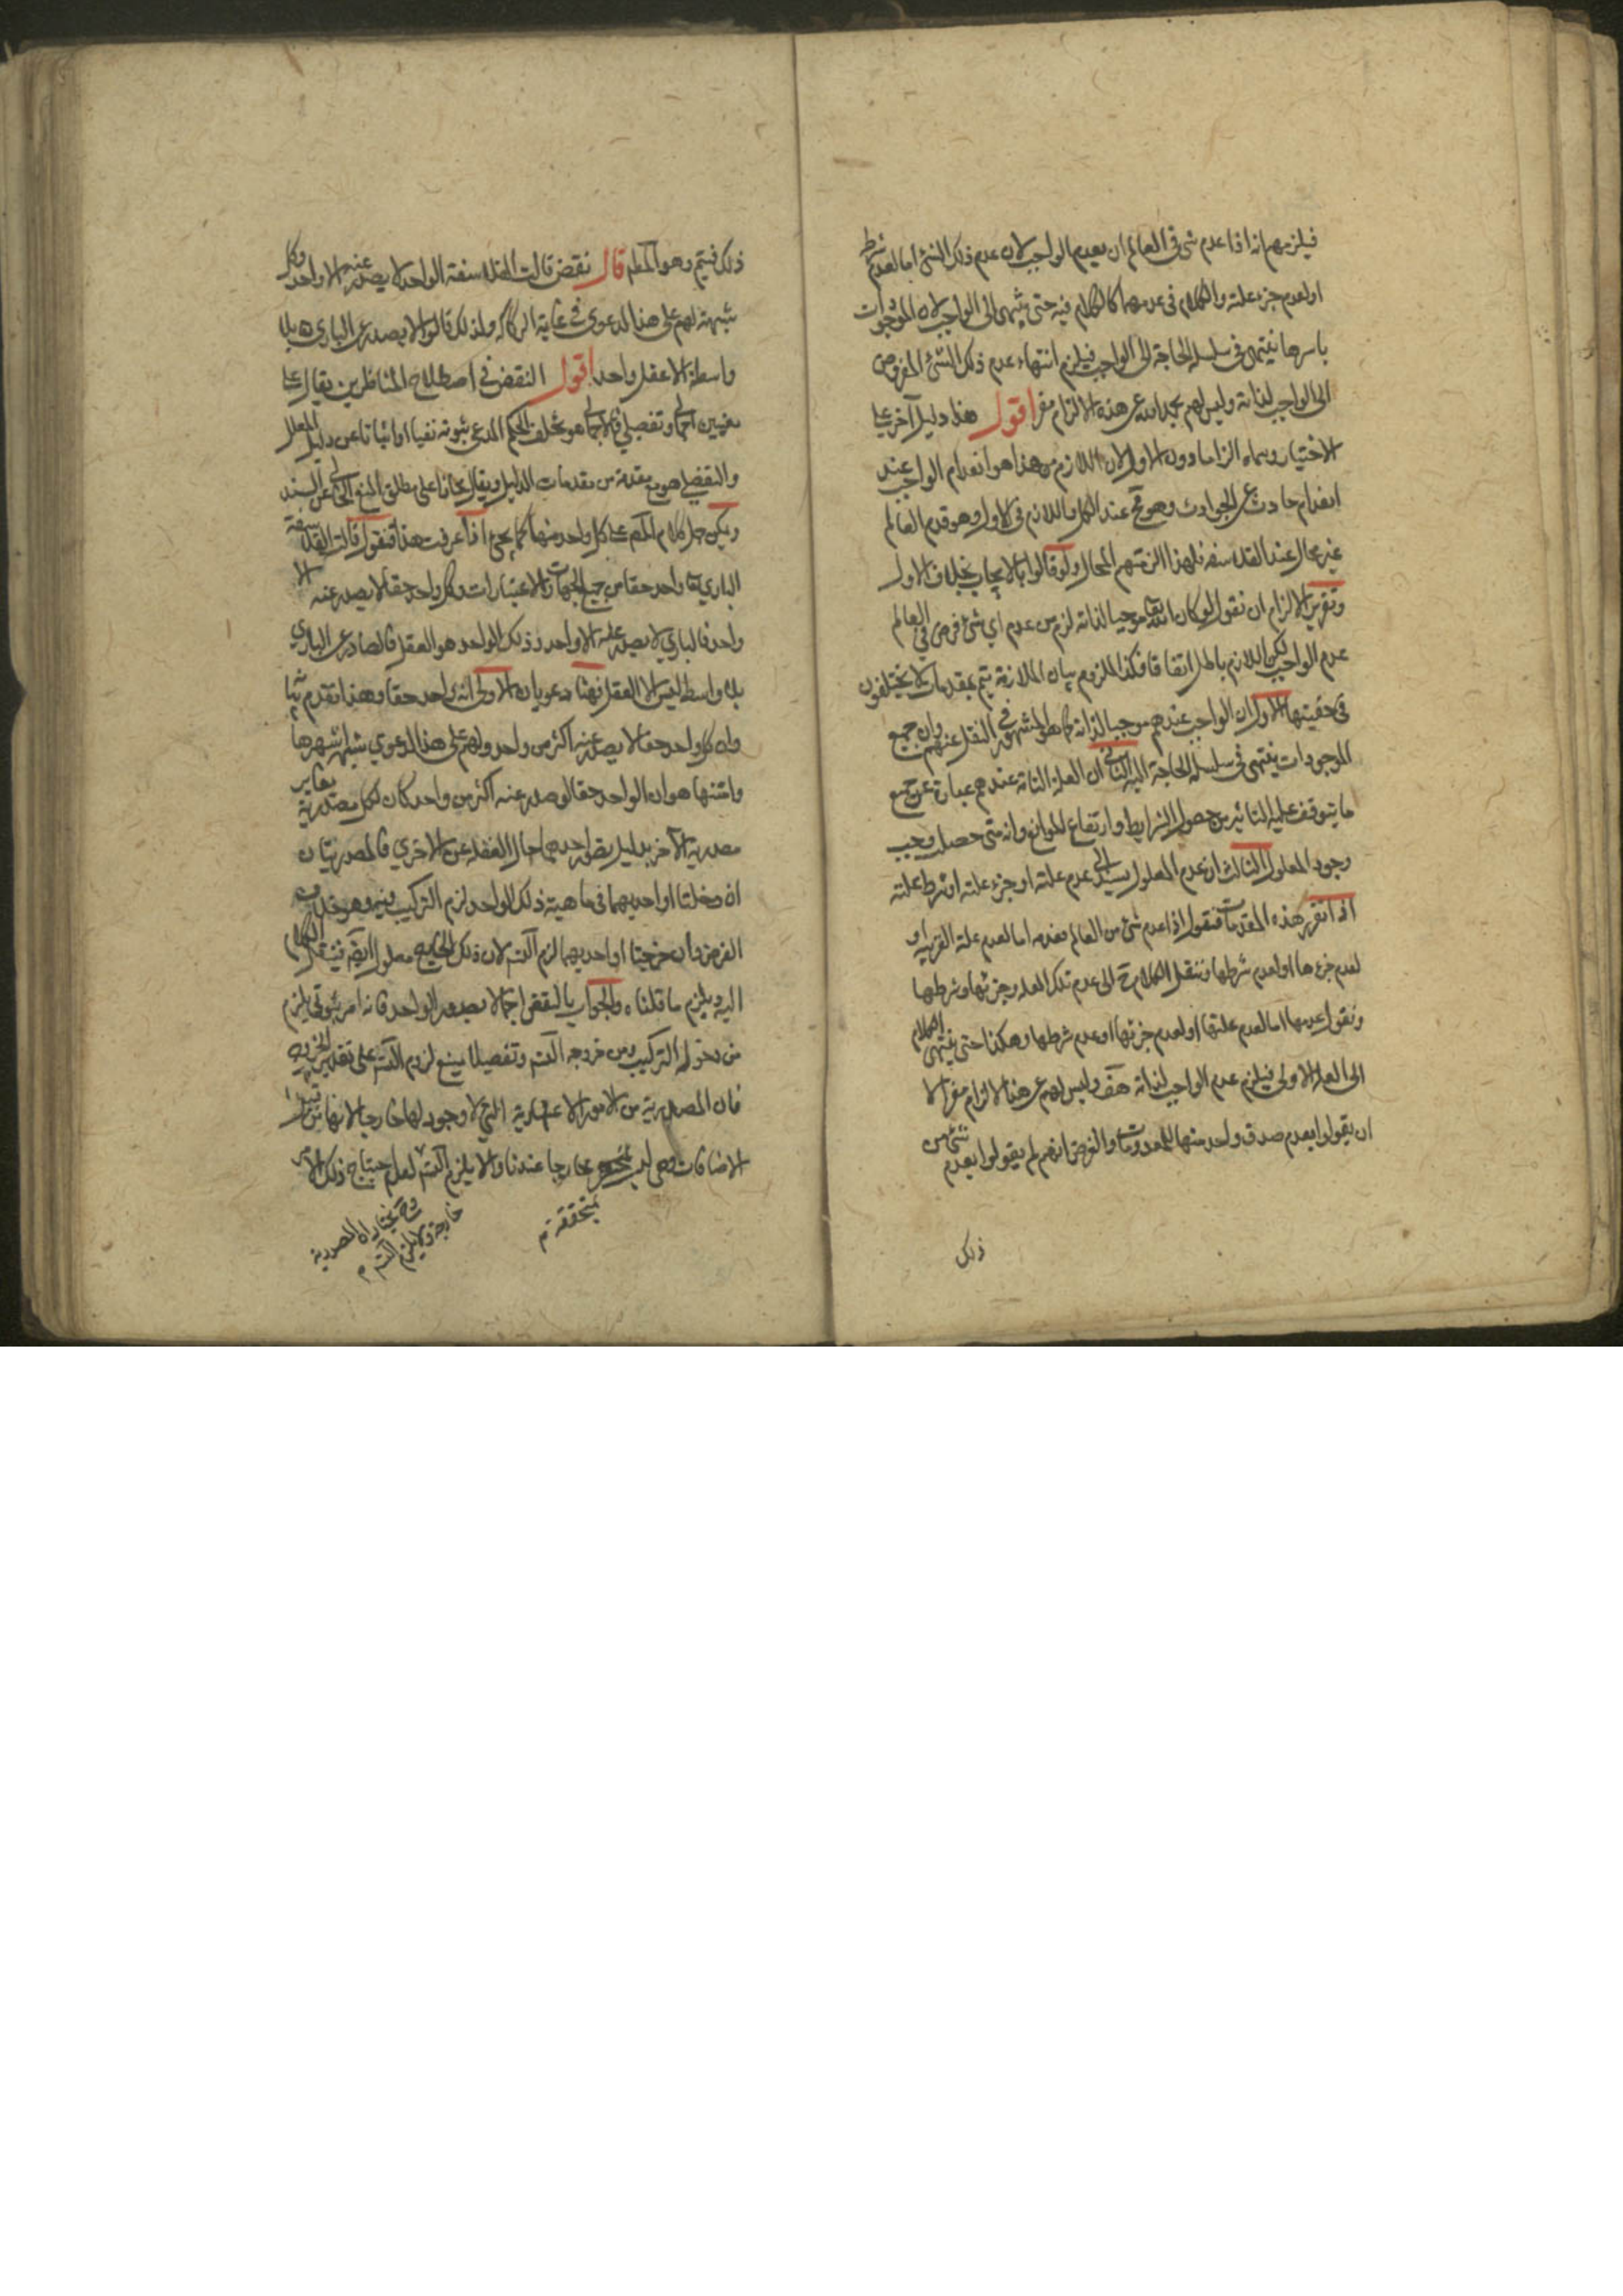 فيلزمهم انه اذا عدم شئ في العالم ان يعدم الواجب لان عدم ذلك الشئ اما لعدم شرطه
او لعدم جزء علته والكلام في عدمهما كالكلام فيه حتى ينتهي الى الواجب لان الموجودات
باسرها تنتهي في سلسلة الحاجة الى الواجب فيلزم انتهاء عدم ذلك الشئ المفروض
الى الواجب لذاته وليس لهم بحمد الله عن هذه الالزام مفر اقول هذا دليل آخر على
الاختيار وسماه الزاما دون الاول لان اللازم من هذا هو انعدام الواجب عند
انعدام حادث من الحوادث وهو مح عند الكل واللازم في الاول وهو قدم العالم
غير محال عند الفلاسفه فلهذا الزمتهم المحال ولو قالوا بالايجاب بخلاف الاول
وتقرير الالزام ان نقول لو كان الله تعالى موجبا لذاته لزم من عدم اي شئ فرض في العالم
عدم الواجب لكن اللازم باطل اتفاقا فكذا الملزوم بيان الملازمة يتم بمقدمات لا يختلفون
في حقيتها الاول ان الواجب عندهم موجب لذاته كما هو المشهور في النقل عنهم وان جميع
الموجودات ينتهي في سلسلة الحاجة اليه الثاني ان العلة التامة عندهم عبارة عن جميع
ما يتوقف عليه التأثير من حصول الشرايط وارتفاع الموانع وانه متى حصل وجب
وجود المعلول الثالث ان عدم المعلول يستند الى عدم علته او جزء علته او شرط علته
اذا تقرر هذه المقدمات فنقول اذا عدم شئ من العالم فعدمه اما لعدم علته القريبه او
لعدم جزءها او لعدم شرطها وننقل الكلام ح الى عدم تلك العله وجزئها وشرطها
ونقول عدمها اما لعدم علتها او لعدم جزئها او عدم شرطها وهكذا حتى ينتهي الكلام
الى العلة الاولى فيلزم عدم الواجب لذاته هف وليس لهم عن هذا الالزام مفر الا
ان يقولوا بعدم صدق واحد منها للمقدمات والفرض انهم لم يقولوا بعدم شئ من
ذلك
ذلك فيتم وهو المطلوب قال نقض قالت الفلاسفة الواحد لا يصدر عنه الا واحد وكل
شبهة لهم على هذا الدعوى في غاية الركاكه ولذلك قالوا لا يصدر عن الباري تعالى بلا
واسطة الا عقل واحد اقول النقض في اصطلاح المناظرين يقال على
معنيين اجمالي وتفصيلي فالاجمالي هو تخلف الحكم المدعى ثبوته نفيا او اثباتا عن دليل المعلل
والتفصيلي هو منع مقدمة من مقدمات الدليل ويقال مجازا على مطلق المنع الخالي عن السند
ويمكن حمل كلام المصم على كل واحد منهما كما يجئ اذا عرفت هذا فنقول قالت الفلاسفة
الباري تعالى واحد حقا من جميع الجهات والاعتبارات وكل واحد حقا لا يصدر عنه الا
واحد فالباري لا يصدر عنه الا واحد وذلك الواحد هو العقل فالصادر عن الباري
بلا واسطه ليس الا العقل فهنا دعويان الاولى انه واحد حقا وهذا تقدم
وان كل واحد حقا لا يصدر عنه اكثر من واحد ولهم على هذا الدعوي شبه اشهرها
وامتنها هو ان الواحد حقا لو صدر عنه اكثر من واحد كان لكل مصدرية يغاير
مصدرية الآخر بدليل تصور احديهما حال الغفلة عن الاخري فالمصدريتان
ان دخلتا او احديهما في ماهية ذلك الواحد لزم التركيب فيه وهو خلاف
الفرض وان خرجتا او احديهما لزم التس لان ذلك الخارج معلول ايضا فينقل الكلام
اليه ويلزم ما قلناه والجواب بالنقض اجمالا بصدور الواحد فانه امر ثبوتي يلزم
من دخوله التركيب ومن خروجه التس وتفصيلا بمنع لزوم التس على تقدير الخروج
فان المصدرية من الامور الاعتبارية التي لا وجود لها خارجا لانها من قبيل
الاضافات وهي ليست خارجا عندنا والا يلزم التس لعدم احتياج ذلك الامر
بمتحققة م
وح نختار ان المصدرية
خارجة ولا يلزم التس م